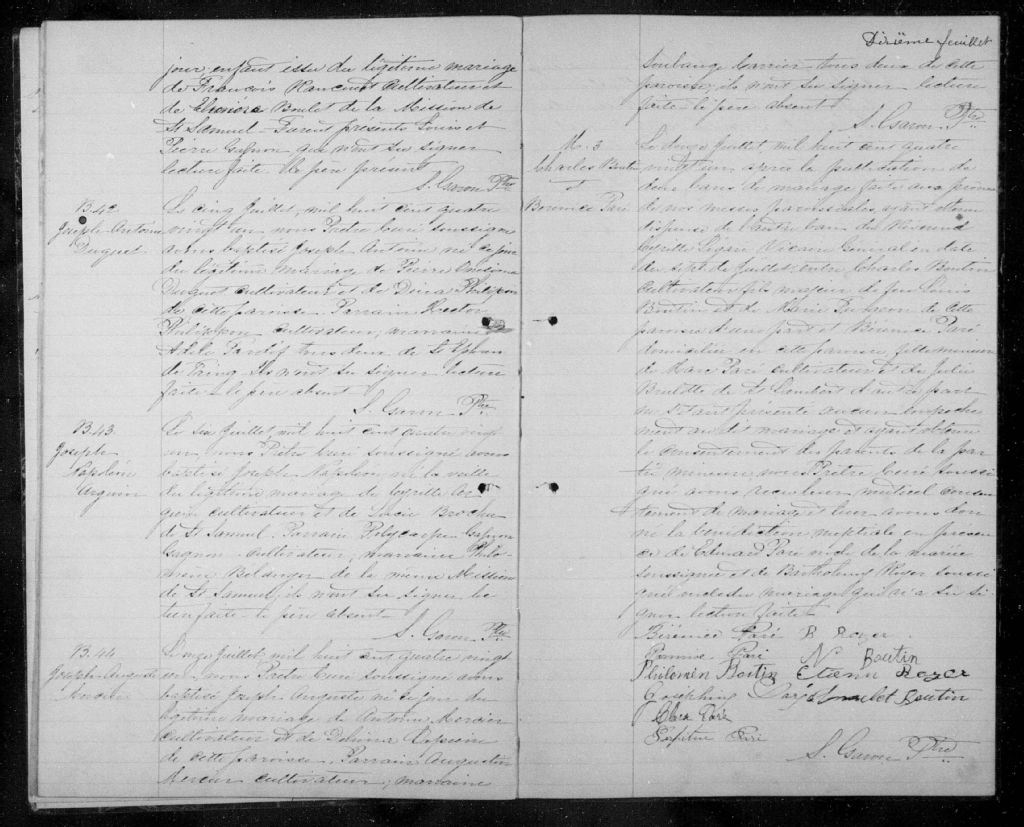 jour enfant issu du légitime mariage
de François Rancourt cultivateur et
de Eléonore Boulet de la Mission de
St Samuel. Furent présents Louis et
Pierre Gagnon qui n'ont su signer
lecture faite. Le père présent.
S. Garon Ptre
B. 42
Joseph Antoine
Duquet
Le cinq Juillet, mil huit cent quatre
vingt un nous Prêtre Curé soussigné
avons baptisé Joseph Antoine né ce jour
du légitime mariage de Pierre
Duquet cultivateur et de
de cette paroisse. Parrain
cultivateur, marraine
tous deux de St
ils n'ont su signer lecture
faite le père absent.
S. Garon Ptre
B. 43
Joseph
Napoléon
Le six Juillet mil huit cent quatre vingt
un nous Prêtre Curé soussigné avons
baptisé Joseph Napoléon né la veille
du légitime mariage de Cyrille
cultivateur et de Brochu
de St Samuel. Parrain Polycarpe
Gagnon cultivateur, marraine Philo-
mène Bélanger de la même Mission
de St Samuel, ils n'ont su signer lec-
ture faite le père absent.
S. Garon Ptre
B. 44
Joseph Auguste
Le onze Juillet mil huit cent quatre vingt
un nous Prêtre Curé soussigné avons
baptisé Joseph Auguste né ce jour du
légitime mariage de Antoine
cultivateur et de
de cette paroisse. Parrain Augustin
Mercier cultivateur, marraine
Dixième feuillet
Soulange tous deux de cette
paroisse, ils n'ont su signer lecture
faite le père absent.
S. Garon Ptre
M. 3
Charles Boutin
et
Bérénice Paré
Le Juillet, mil huit cent quatre
vingt un après la publication de
deux bans de mariage faite aux prônes
de nos messes paroissiales, ayant obtenu
dispense de l'autre ban du Révérend
Cyrille Vicaire Général en date
du sept de Juillet entre Charles Boutin
cultivateur fils majeur de feu
Boutin et de Marie de cette
paroisse d'une part et Bérénice Paré
domiciliée en cette paroisse, fille mineure
de Marc Paré cultivateur et de Julie
de St Lambert d'autre part
ne s'étant présenté aucun empêche-
ment au dit mariage et ayant obtenu
le consentement des parents de la par-
tie mineure nous Prêtre Curé soussi-
gné avons reçu leur mutuel consen-
tement de mariage et leur avons don-
né la bénédiction nuptiale en présen-
ce de Edouard Paré oncle de la mariée
soussignée et de Bartholemy Royer soussi-
gné mariage qui n'a su si-
gner lecture faite.
Bérénice Paré B Royer
Paré N Boutin
Philomin Boutin Etienn Royer
Joséphine Paré Boutin
Paré
Paré
S. Garon Ptre